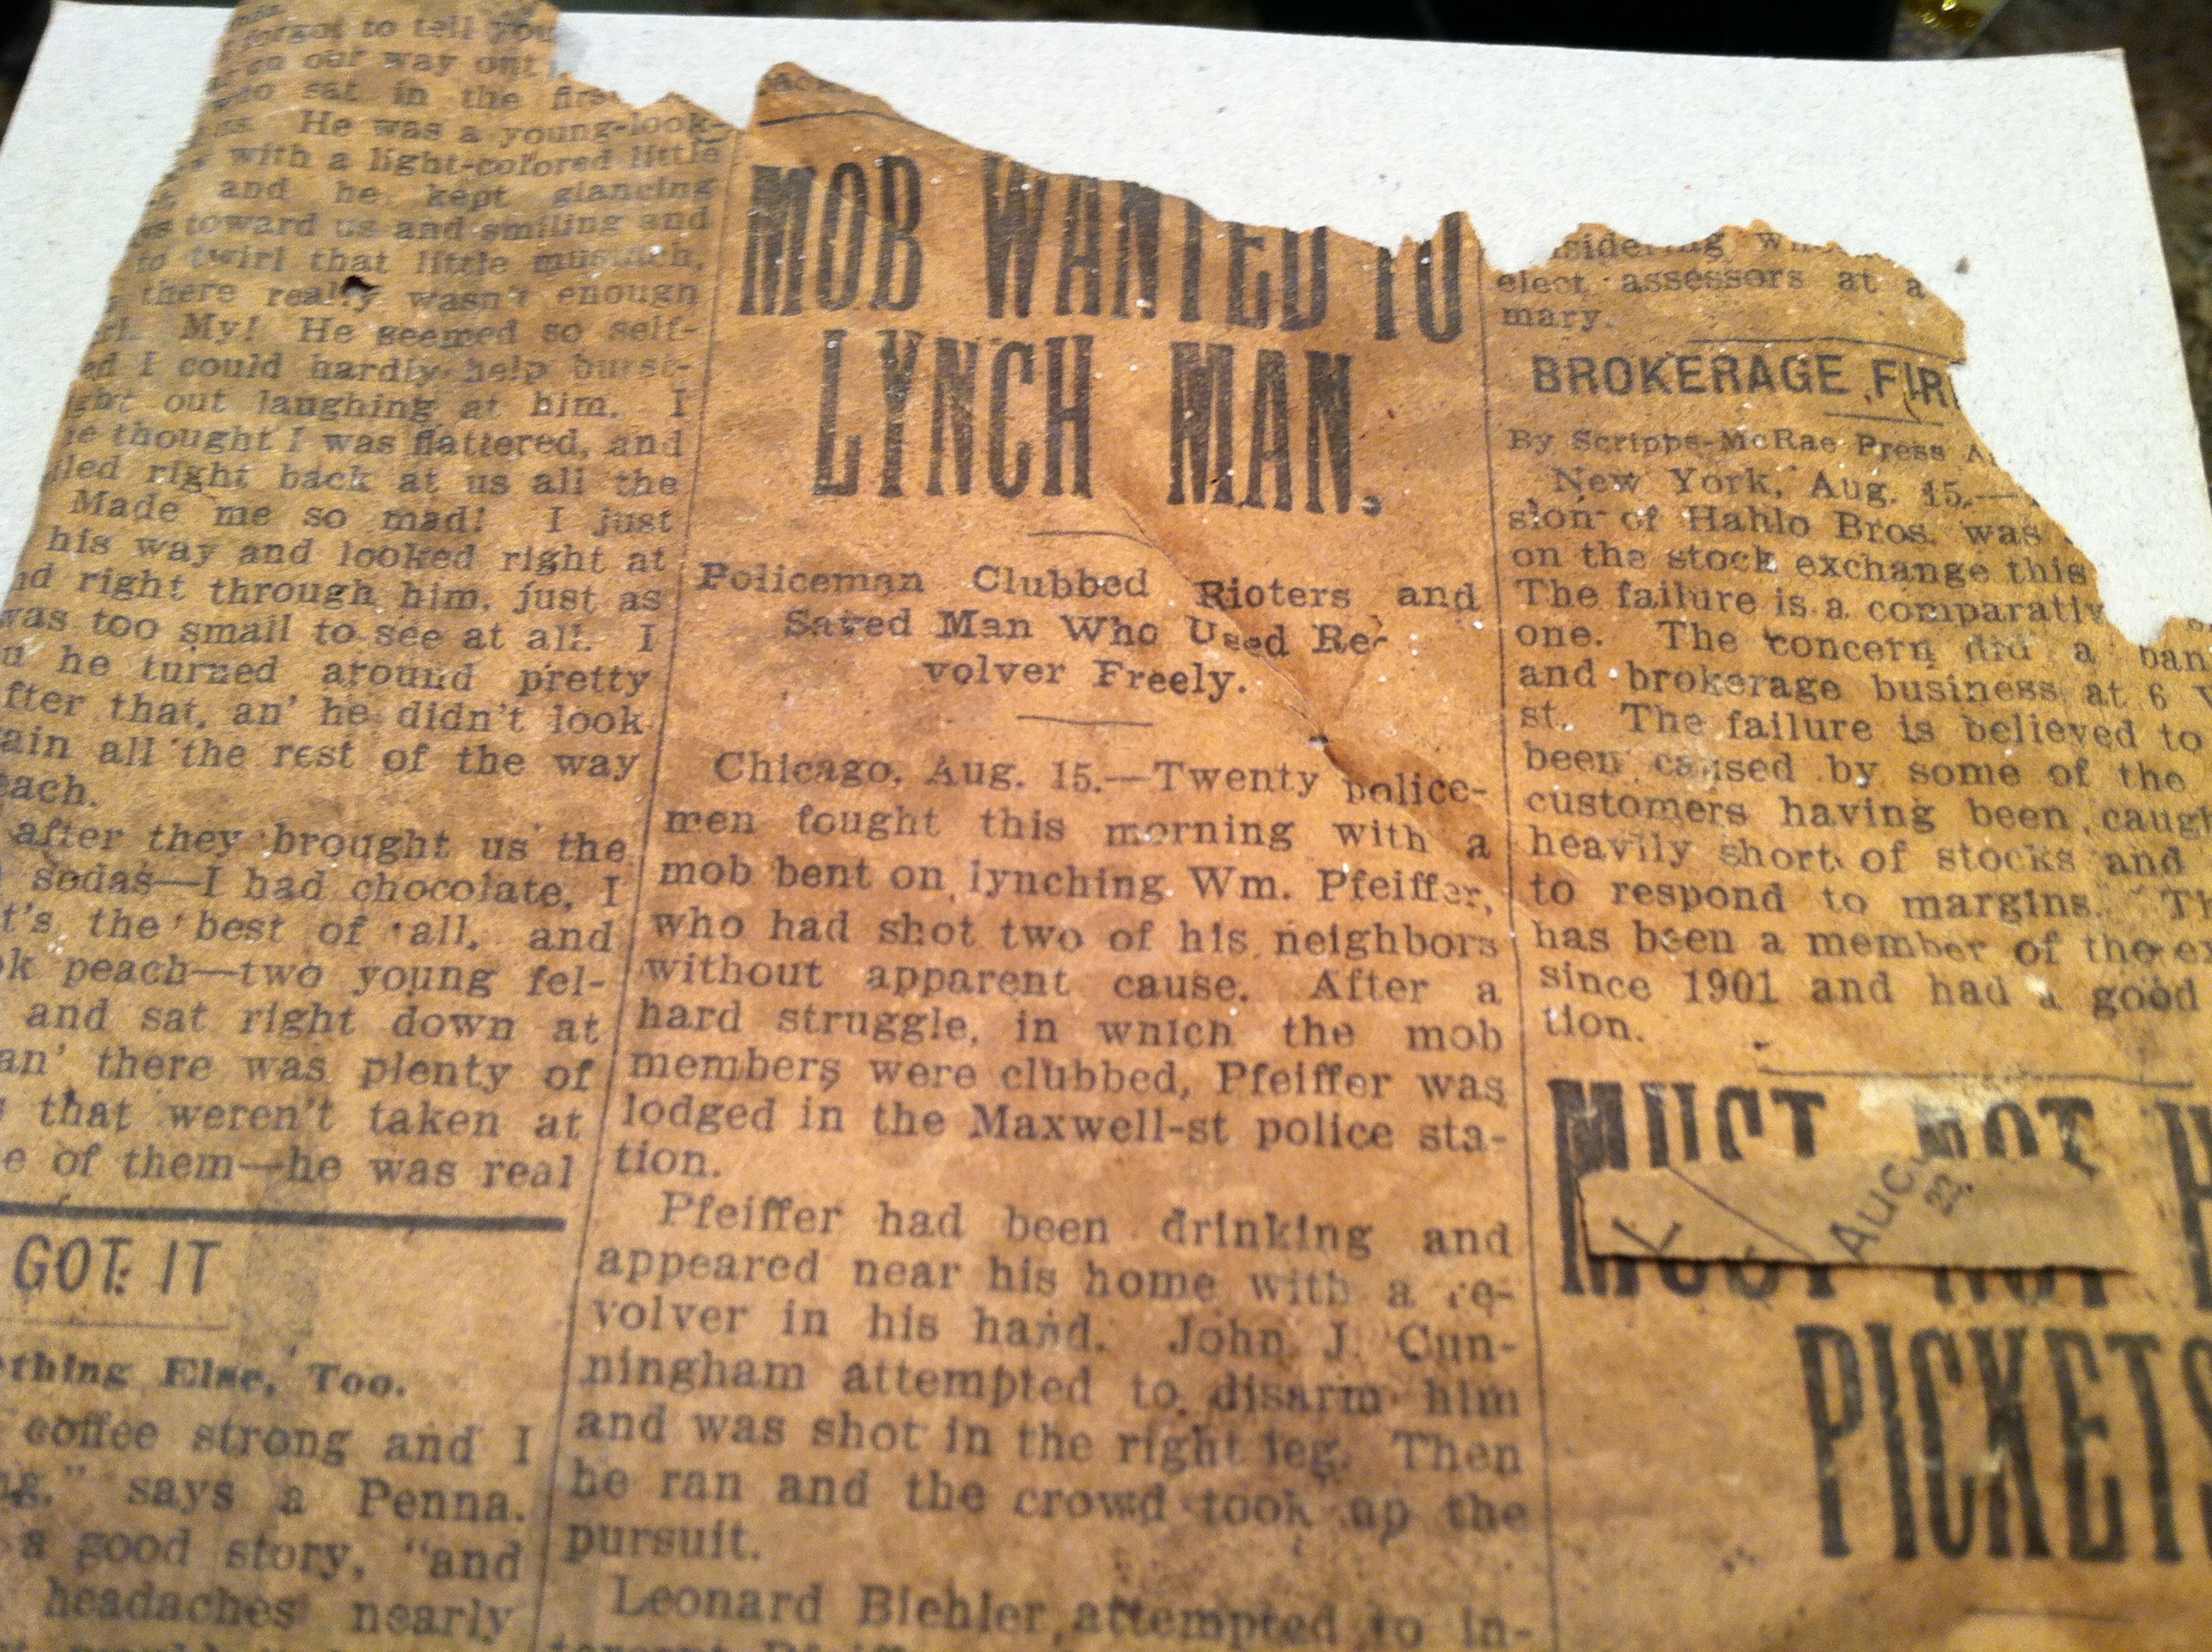 forgot to tell you
on our way out
who sat in the first
He was a young-look-
with a light-colored little
and he kept glancing
toward us and smiling and
to twirl that little mustach,
there really wasn't enough
My! He seemed so self-
I could hardly help burst-
out laughing at him. I
he thought I was flattered, and
right back at us all the
Made me so mad! I just
his way and looked right at
right through him, just as
was too small to see at all. I
he turned around pretty
after that, an' he didn't look
all the rest of the way
after they brought us the
sodas—I had chocolate, I
the best of all, and
peach—two young fel-
and sat right down at
an' there was plenty of
that weren't taken at
of them—he was real
GOT IT
Else, Too.
coffee strong and I
says a Penna.
a good story, "and
headaches nearly
MOB WANTED TO
LYNCH MAN.
Policeman Clubbed Rioters and
Saved Man Who Used Re-
volver Freely.
Chicago, Aug. 15.—Twenty police-
men fought this morning with a
mob bent on lynching Wm. Pfeiffer,
who had shot two of his neighbors
without apparent cause. After a
hard struggle, in which the mob
members were clubbed, Pfeiffer was
lodged in the Maxwell-st police sta-
tion.
Pfeiffer had been drinking and
appeared near his home with a re-
volver in his hand. John J. Cun-
ningham attempted to disarm him
and was shot in the right leg. Then
he ran and the crowd took up the
pursuit.
Leonard Biehler attempted to in-
elect assessors at a
mary.
BROKERAGE FIR
By Scripps-McRae Press A
New York, Aug. 15.—
sion of Hahlo Bros. was
on the stock exchange this
The failure is a comparativ
one. The concern did a ban
and brokerage business at 6
st. The failure is believed to
been caused by some of the
customers having been caug
heavily short of stocks and
to respond to margins.
has been a member of the ex
since 1901 and had a good
tion.
MUST NOT
Auc
22.
MUST NOT
PICKETS